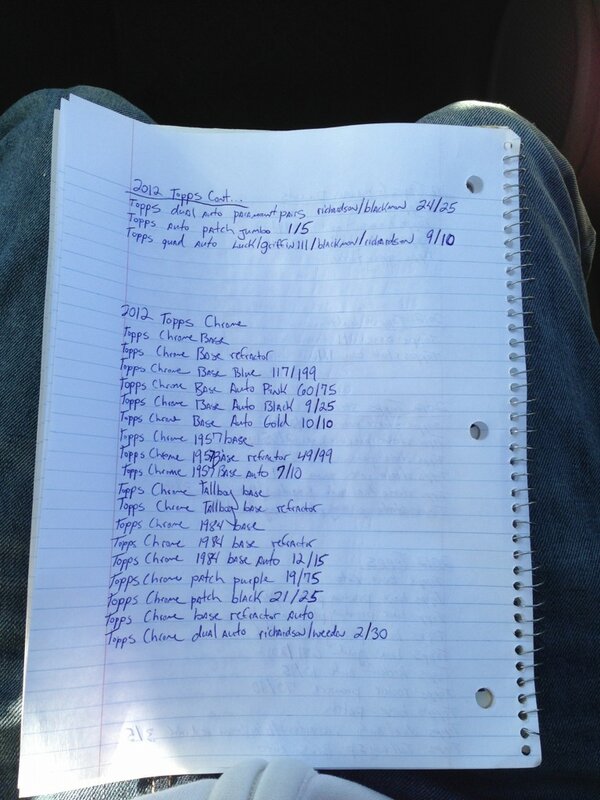 2012 Topps Cont...
Topps dual Auto paramount pairs richardson/blackmon 24/25
Topps Auto patch jumbo 1/5
Topps quad Auto Luck/griffin III/blackmon/richardson 9/10
2012 Topps Chrome
Topps Chrome Base
Topps Chrome Base refractor
Topps Chrome Base Blue 117/199
Topps Chrome Base Auto Pink 60/75
Topps Chrome Base Auto Black 9/25
Topps Chrome Base Auto Gold 10/10
Topps Chrome 1957 base
Topps Chrome 1957 Base refractor 49/99
Topps Chrome 1957 Base Auto 7/10
Topps Chrome Tallboy base
Topps Chrome Tallboy base refractor
Topps Chrome 1984 base
Topps Chrome 1984 base refractor
Topps Chrome 1984 base Auto 12/15
Topps Chrome patch purple 19/75
Topps Chrome patch black 21/25
Topps Chrome base refractor Auto
Topps Chrome dual Auto richardson/weeden 2/30